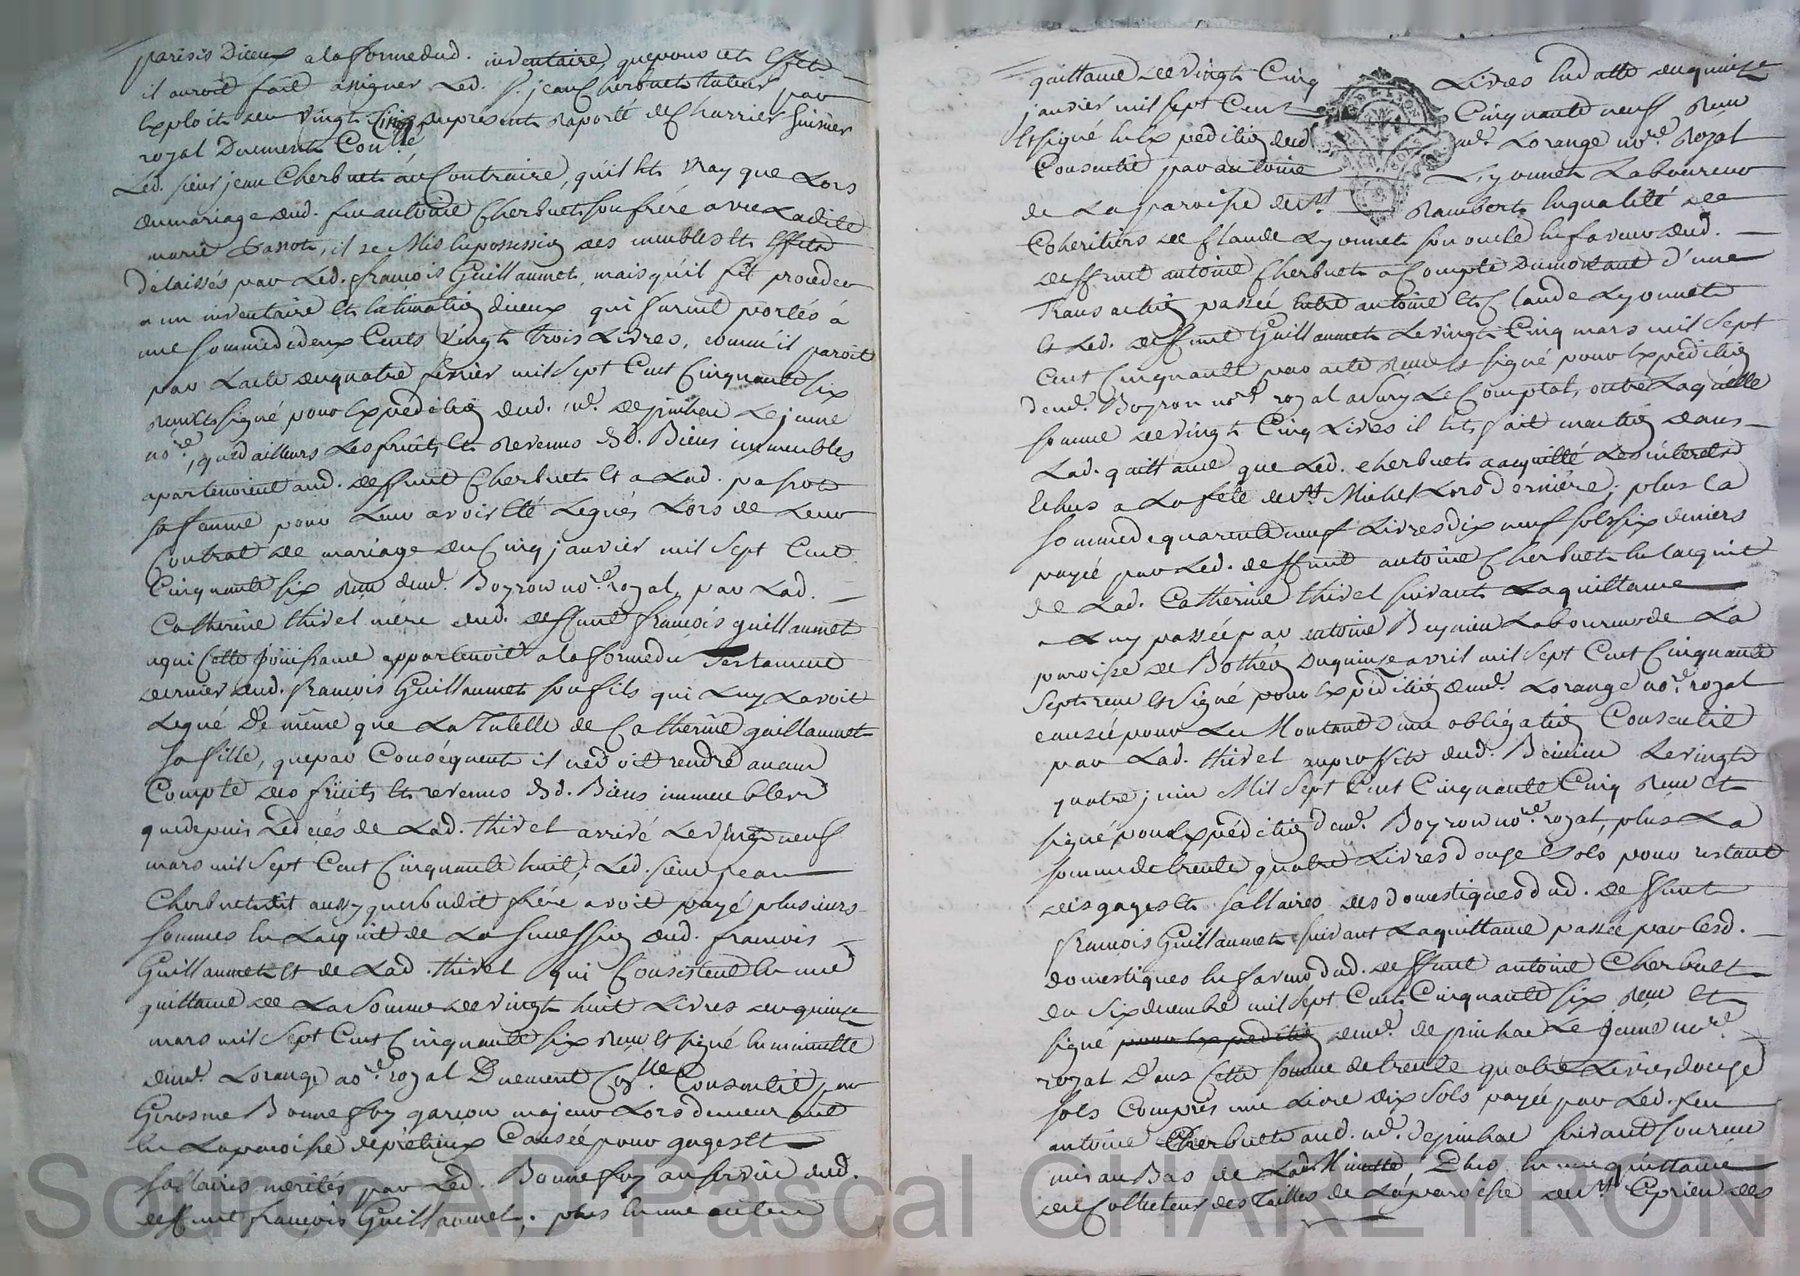 parisis Diceux a la forme dud. inventaire, que pour cet Effet
il auroit fait assigner Led. S. jean Cherbuet tuteur par
Exploit du vingt Cinq du present Raporté de Charrier huissier
royal Duement Conllé
Led. sieur jean Cherbuet au Contraire, qu'il Est vray que Lors
du mariage dud. feu antoine Cherbuet son frère avec Ladite
marie Passot, il se Mis En possession des meubles Et Effets
délaissés par Led. françois Guillaumet, mais qu'il fit proceder
a un inventaire Et Estimation diceux qui furent portés à
une somme de deux Cents vingt trois Livres, comme il paroit
par Lacte du quatre février mil sept Cent Cinquante six
Reçu Et signé pour Expédition dud. me. Depinhac Le jeune
nore, que d'ailleurs Les fruits Et Revenus dsd. Biens immeubles
apartenoient aud. deffunt Cherbuet Et a Lad. passot
sa femme pour Leur avoir Eté Legués Lors de Leur
Contrat de mariage du Cinq janvier mil sept Cent
Cinquante six Reçu dud. me. Boyron nore. royal, par Lad.
Catherine thivel mère dud. deffunt françois guillaumet
a qui Cette jouissance appartenoit a la forme du Testament
dernier dud. françois Guillaumet son fils qui Luy Lavoit
Legué De même que La Tutelle de Catherine guillaumet
sa fille, que par Conséquent il ne doit rendre aucun
Compte des fruits Et revenus dsd. Biens immeubles
que depuis Le décés de Lad. thivel arrivé Le vingt neuf
mars mil sept Cent Cinquante huit; Led. sieur jean
Cherbuet dit aussy que sondit frère avoit payé plusieurs
sommes En Lacquit de La succession dud. françois
Guillaumet Et de Lad. thivel qui Consistent En une
quittance de La somme de vingt huit Livres du quinze
mars mil sept Cent Cinquante six Reçu Et signé En minutte
dud. me. Lorange nore. royal Duement Conllé Consentie par
Gerosme Bonnefoy garçon majeur Lors demeurant
En La paroisse de prétieux Causée pour gages Et
sallaires mérités par Led. Bonnefoy au service dud.
deffunt françois Guillaumet; plus En une autre
quittance de vingt Cinq Livres En datte du quinze
janvier mil sept Cent Cinquante neuf Reçu
Et signé En Expédition dud. me. Lorange nore. Royal
Consentie par antoine Lyonnet Laboureur
de La paroisse de St. Rambert En qualité de
Coheritier de Claude Lyonnet son oncle En faveur dud.
deffunt antoine Cherbuet a Compte du montant d'une
Transaction passée Entre antoine Et Claude Lyonnet
Et Led. deffunt Guillaumet Le vingt Cinq mars mil sept
Cent Cinquante par acte Reçu Et signé pour Expédition
dud. me. Boyron nore. royal a Sury Le Comptal, outre Laquelle
somme de vingt Cinq Livres il Est fait mention dans
Lad. quittance que Led. Cherbuet a acquitté Les intérets
Echus a La fête de St. Michel Lors dernière; plus La
somme de quarante neuf Livres dix neuf sols six deniers
payée par Led. deffunt antoine Cherbuet En lacquit
de Lad. Catherine thivel suivant La quittance
a Luy passée par antoine Beynieu Laboureur de La
paroisse de Bothéon Du quinze avril mil sept Cent Cinquante
sept reçu Et signé pour Expédition dud. me. Lorange nore. royal
causée pour Le Montant d'une obligation Consentie
par Lad. thivel au proffit dud. Beinieu Le vingt
quatre juin Mil sept Cent Cinquante Cinq Reçu Et
signé pour Expédition dud. me. Boyron nore. royal, plus La
somme de trente quatre Livres douze sols pour restant
des gages Et sallaires des domestiques dud. deffunt
françois Guillaumet suivant La quittance passée par Lesd.
domestiques En faveur dud. deffunt antoine Cherbuet
du six décembre mil sept Cent Cinquante six Reçu Et
signé pour Expédition dud. me. depinhac Le jeune nore.
royal Dans Cette somme de trente quatre Livres douze
sols Compris une Livre dix sols payée par Led. feu
antoine Cherbuet aud. me. Depinhac suivant son reçu
mis au Bas de Lad. Minutte, Plus En une quittance
du Collecteur des Tailles de La paroisse de St. Cyprien des
Source AD Pascal CHAREYRON